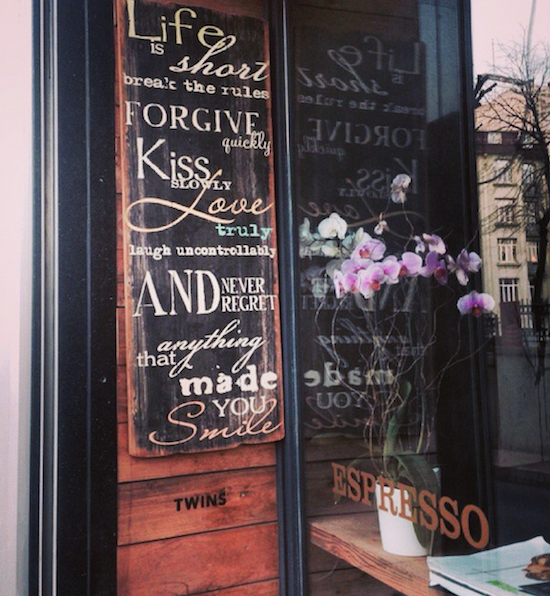 Life
is
short
break the rules
FORGIVE
quickly
Kiss
SLOWLY
Love
truly
laugh uncontrollably
AND NEVER
REGRET
anything
that
made
YOU
Smile
TWINS
ESPRESSO